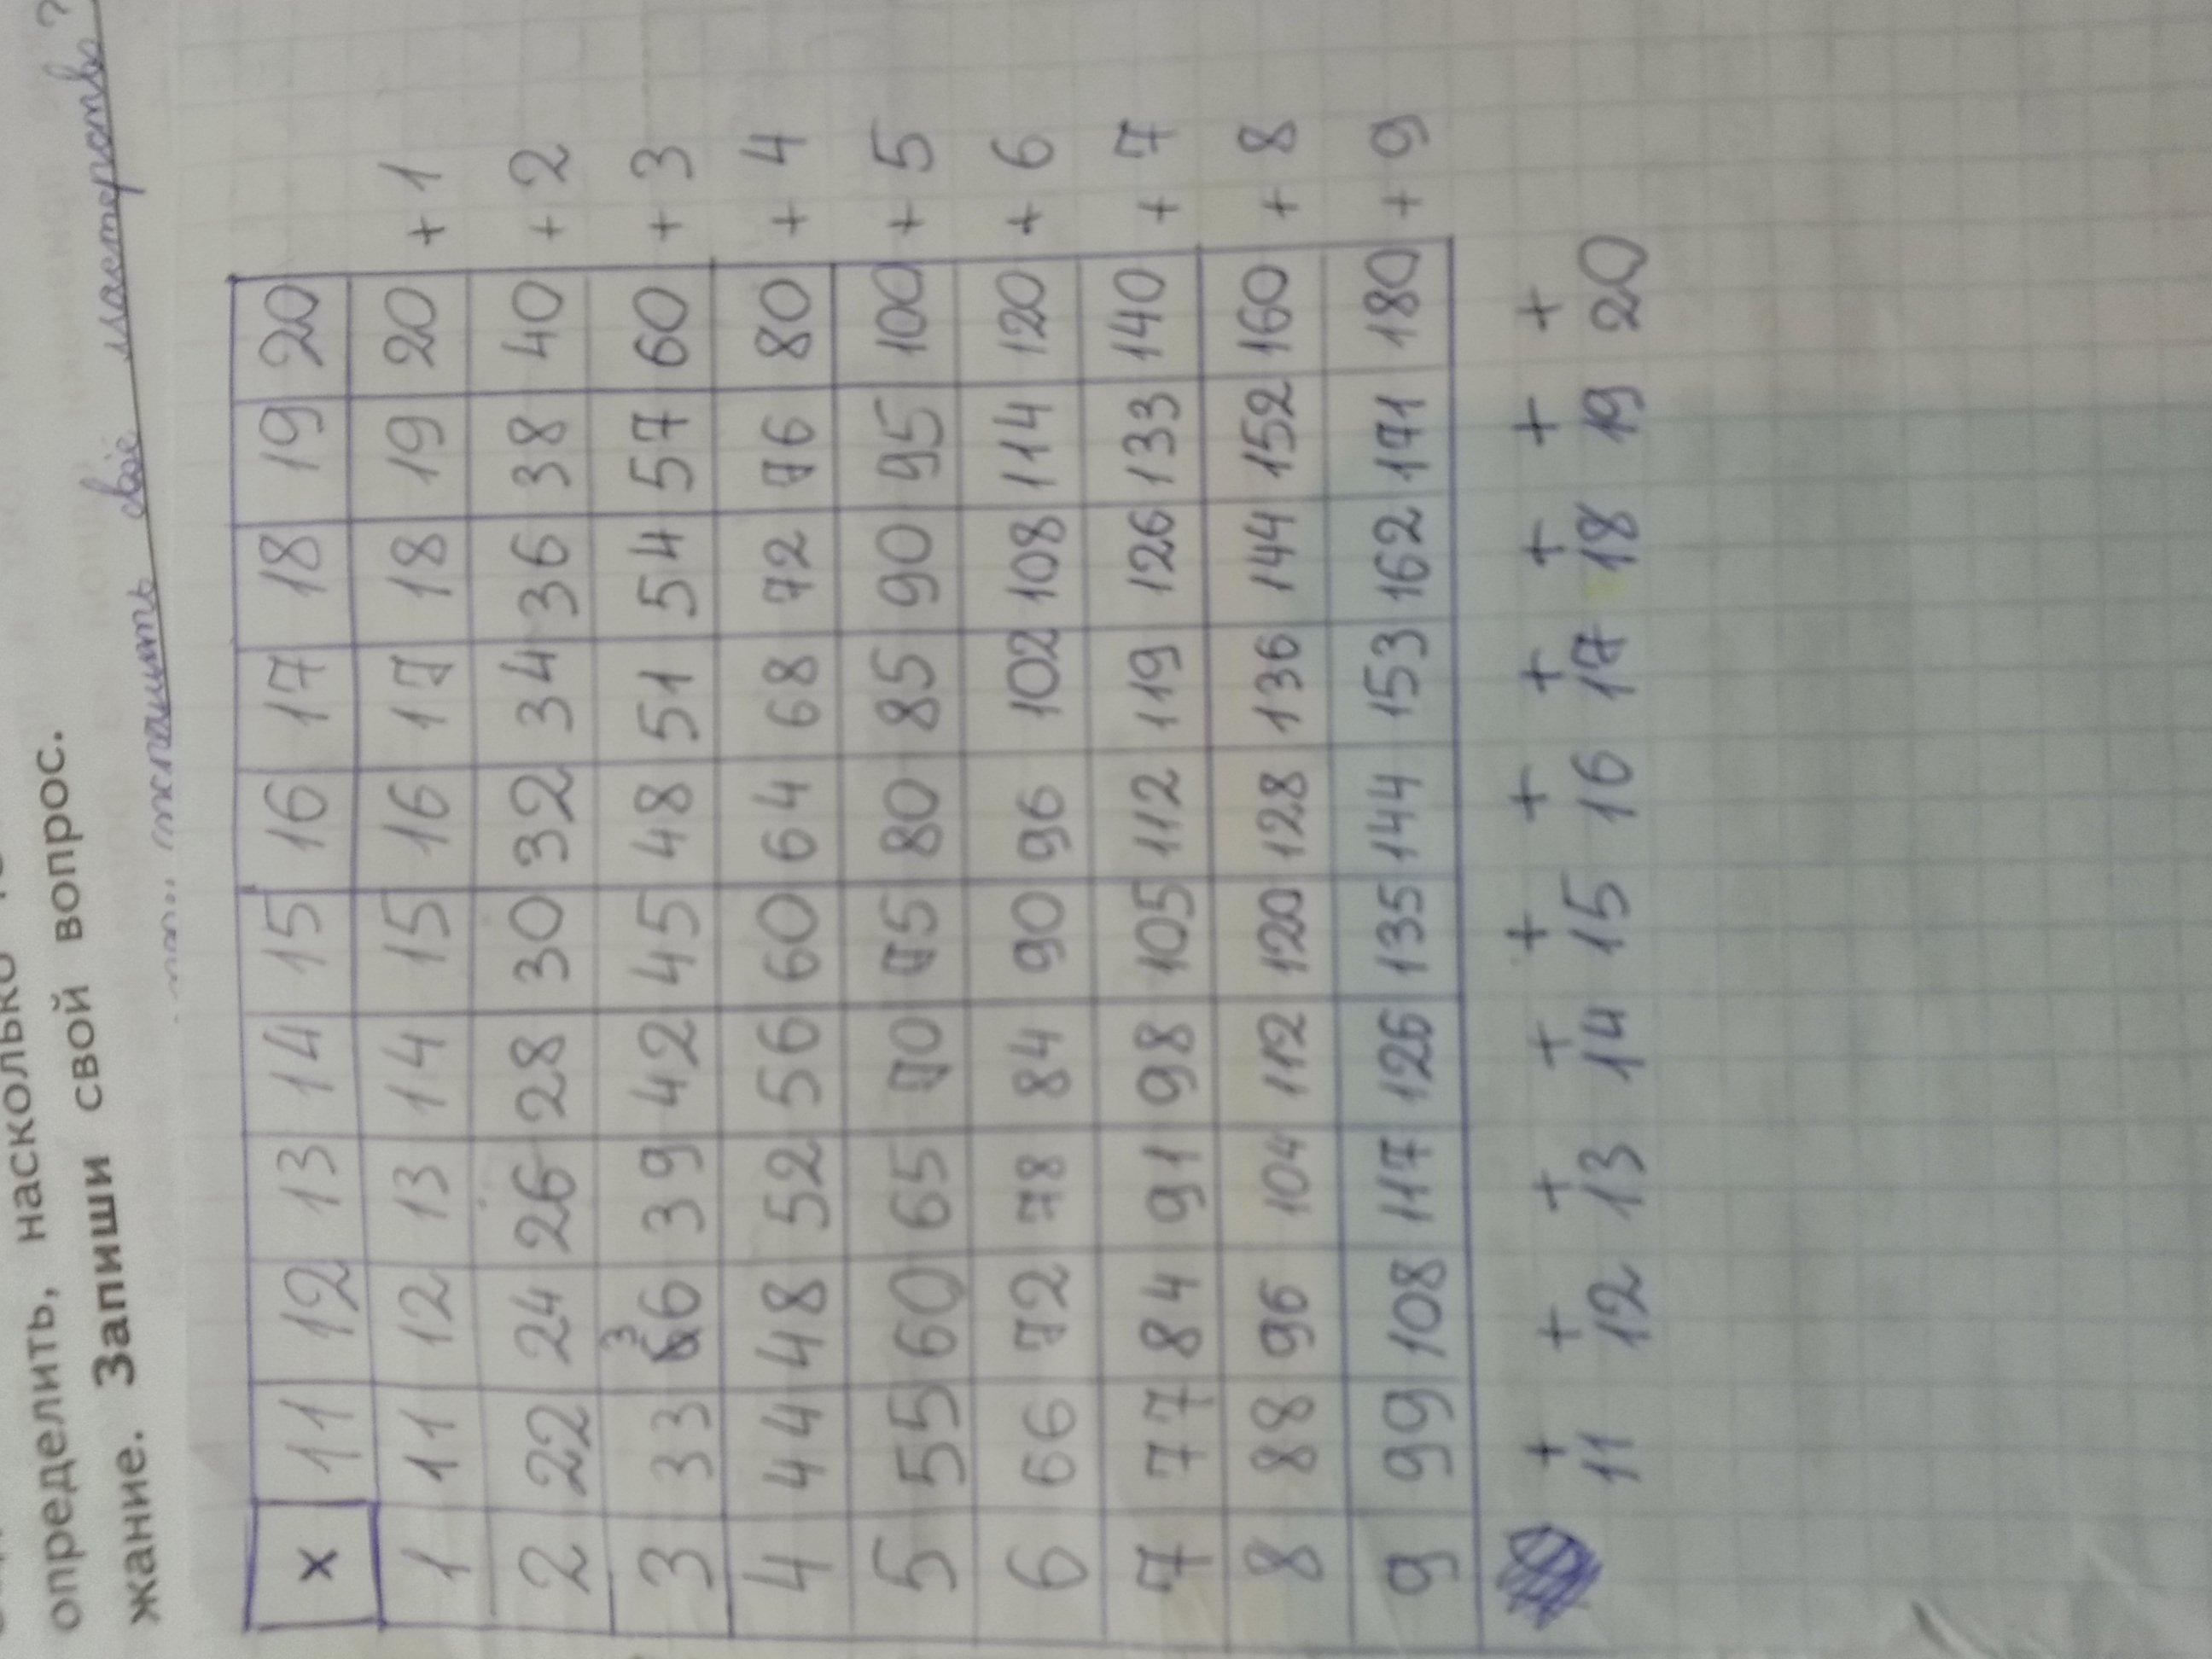 определить, насколько
жание. Запиши свой вопрос.
своё мастерство?
x 11 12 13 14 15 16 17 18 19 20
1 11 12 13 14 15 16 17 18 19 20 +1
2 22 24 26 28 30 32 34 36 38 40 +2
3 33 36 39 42 45 48 51 54 57 60 +3
4 44 48 52 56 60 64 68 72 76 80 +4
5 55 60 65 70 75 80 85 90 95 100 +5
6 66 72 78 84 90 96 102 108 114 120 +6
7 77 84 91 98 105 112 119 126 133 140 +7
8 88 96 104 112 120 128 136 144 152 160 +8
9 99 108 117 126 135 144 153 162 171 180 +9
+ + + + + + + + + +
11 12 13 14 15 16 17 18 19 20